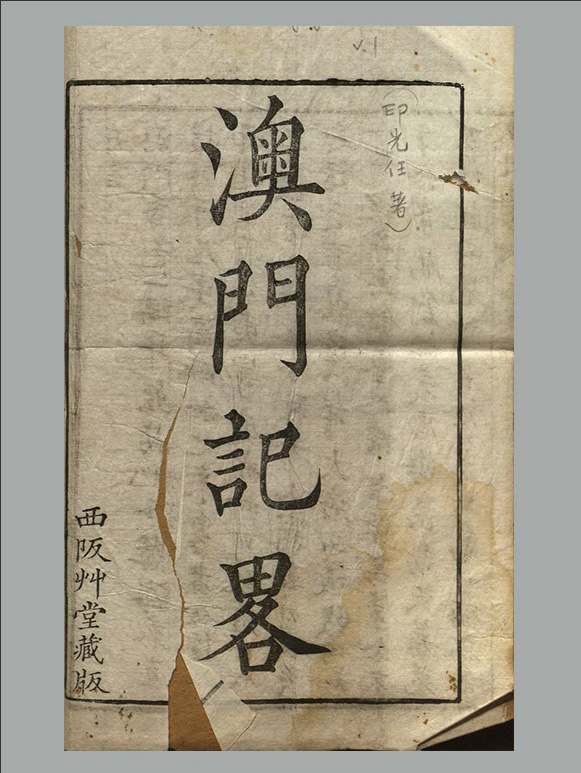 v.1
(印光任著)
澳門記畧
西阪艸堂藏版